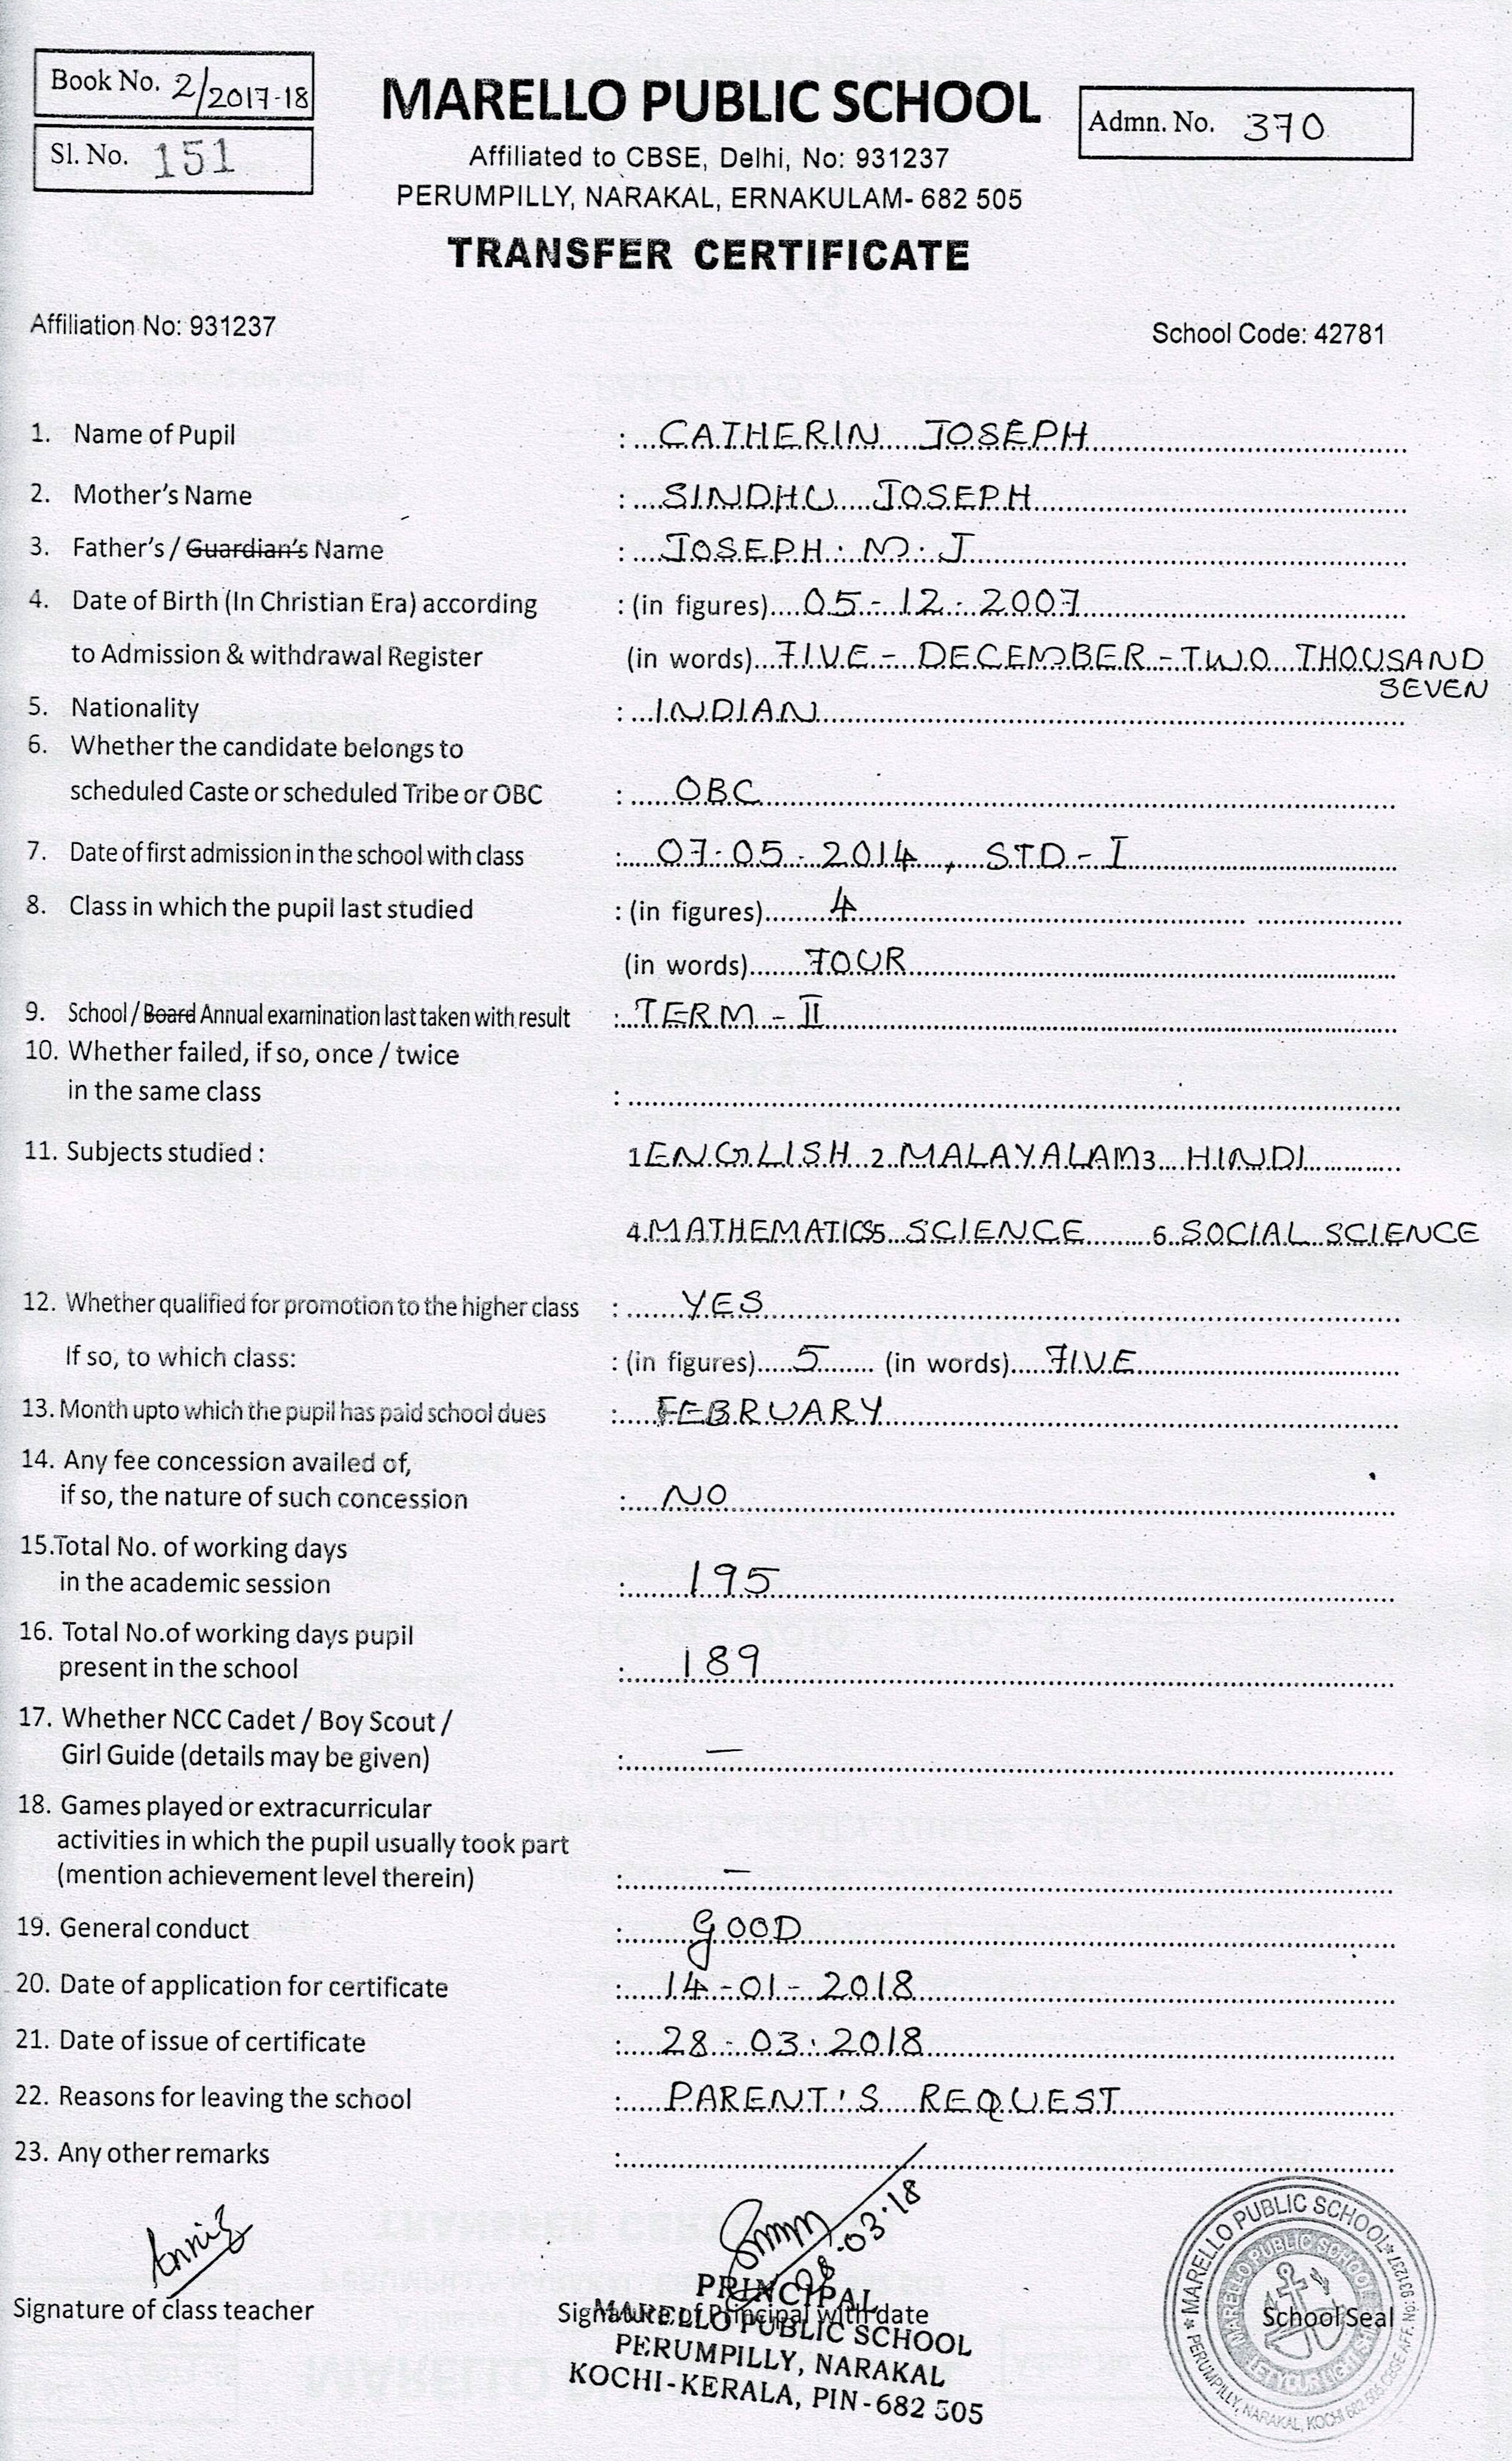 Book No. 2/2017-18
Sl. No. 151
MARELLO PUBLIC SCHOOL
Admn. No. 370
Affiliated to CBSE, Delhi, No: 931237
PERUMPILLY, NARAKAL, ERNAKULAM- 682 505
TRANSFER CERTIFICATE
Affiliation No: 931237 School Code: 42781
1. Name of Pupil : CATHERIN JOSEPH
2. Mother's Name : SINDHU JOSEPH
3. Father's / Guardian's Name : JOSEPH. M. J
4. Date of Birth (In Christian Era) according : (in figures) 05-12-2007
to Admission & withdrawal Register (in words) FIVE - DECEMBER - TWO THOUSAND
SEVEN
5. Nationality : INDIAN
6. Whether the candidate belongs to
scheduled Caste or scheduled Tribe or OBC : OBC
7. Date of first admission in the school with class : 07-05-2014, STD-I
8. Class in which the pupil last studied : (in figures) 4
(in words) FOUR
9. School / Board Annual examination last taken with result : TERM - II
10. Whether failed, if so, once / twice
in the same class :
11. Subjects studied : 1 ENGLISH 2 MALAYALAM 3 HINDI
4. MATHEMATICS 5 SCIENCE 6 SOCIAL SCIENCE
12. Whether qualified for promotion to the higher class : YES
If so, to which class: : (in figures) 5 (in words) FIVE
13. Month upto which the pupil has paid school dues : FEBRUARY
14. Any fee concession availed of,
if so, the nature of such concession : NO
15. Total No. of working days
in the academic session : 195
16. Total No.of working days pupil
present in the school : 189
17. Whether NCC Cadet / Boy Scout /
Girl Guide (details may be given) : —
18. Games played or extracurricular
activities in which the pupil usually took part
(mention achievement level therein) : —
19. General conduct : GOOD
20. Date of application for certificate : 14-01-2018
21. Date of issue of certificate : 28-03-2018
22. Reasons for leaving the school : PARENT'S REQUEST
23. Any other remarks :
28.03.18
Signature of class teacher Signature of Principal with date School Seal
PRINCIPAL
MARELLO PUBLIC SCHOOL
PERUMPILLY, NARAKAL
KOCHI-KERALA, PIN-682 505
MARELLO PUBLIC SCHOOL
PERUMPILLY, NARAKAL, KOCHI 682 505, CBSE AFF.No: 931237
MARELLO PUBLIC SCHOOL